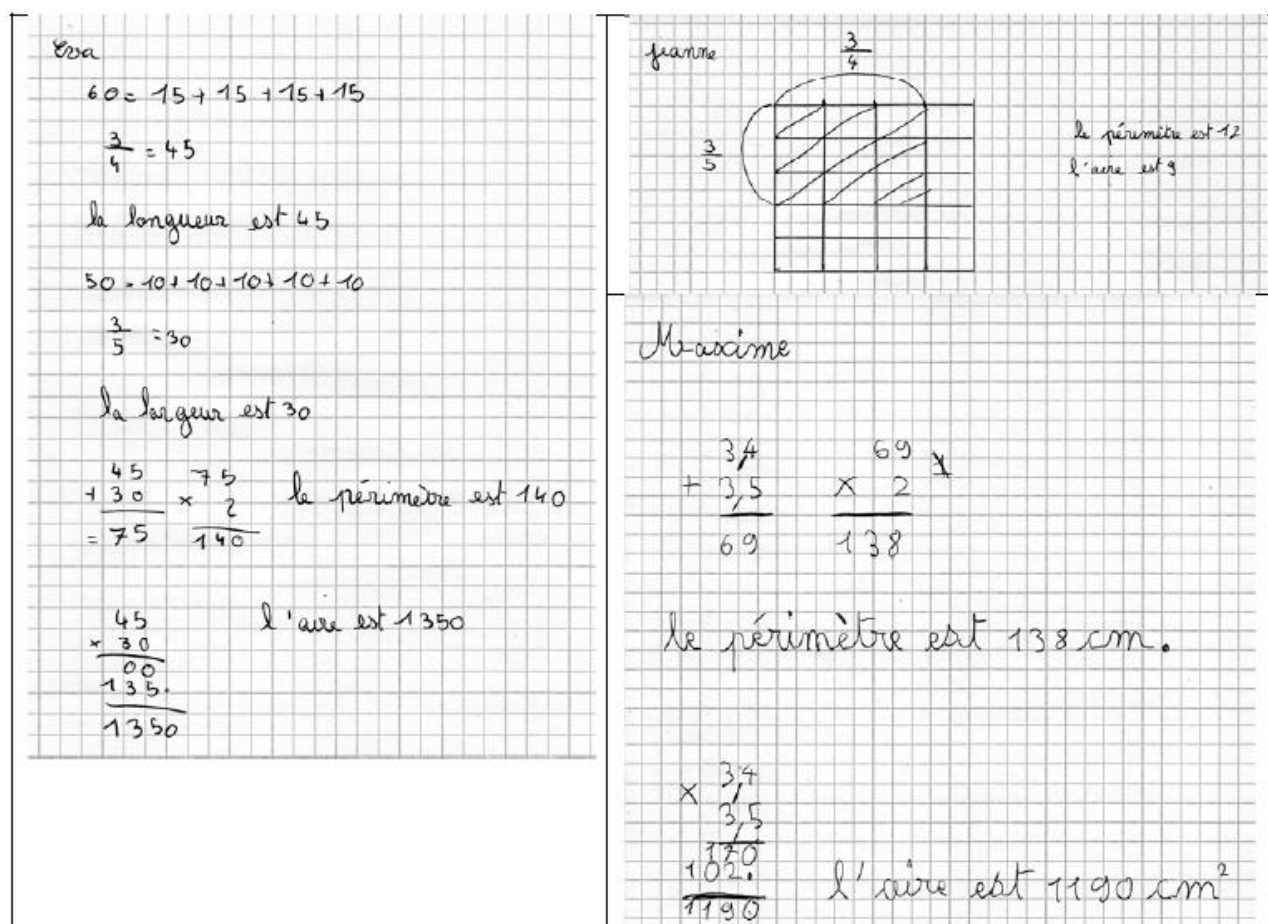 Eva
60 = 15 + 15 + 15 + 15
3/4 = 45
la longueur est 45
50 = 10 + 10 + 10 + 10 + 10
3/5 = 30
la largeur est 30
45
+ 30
= 75
75
× 2
140
le périmètre est 140
45
× 30
00
135.
1350
l'aire est 1350
jeanne
3/4
3/5
le périmètre est 12
l'aire est 9
Maxime
3,4
+ 3,5
69
69
× 2
138
le périmètre est 138 cm.
× 3,4
3,5
170
102.
1190
l'aire est 1190 cm²